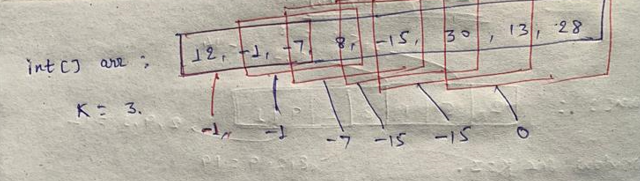 int[] arr : 12, -1, -7, 8, -15, 30, 13, 28
K = 3.
-1, -1 -7 -15 -15 0